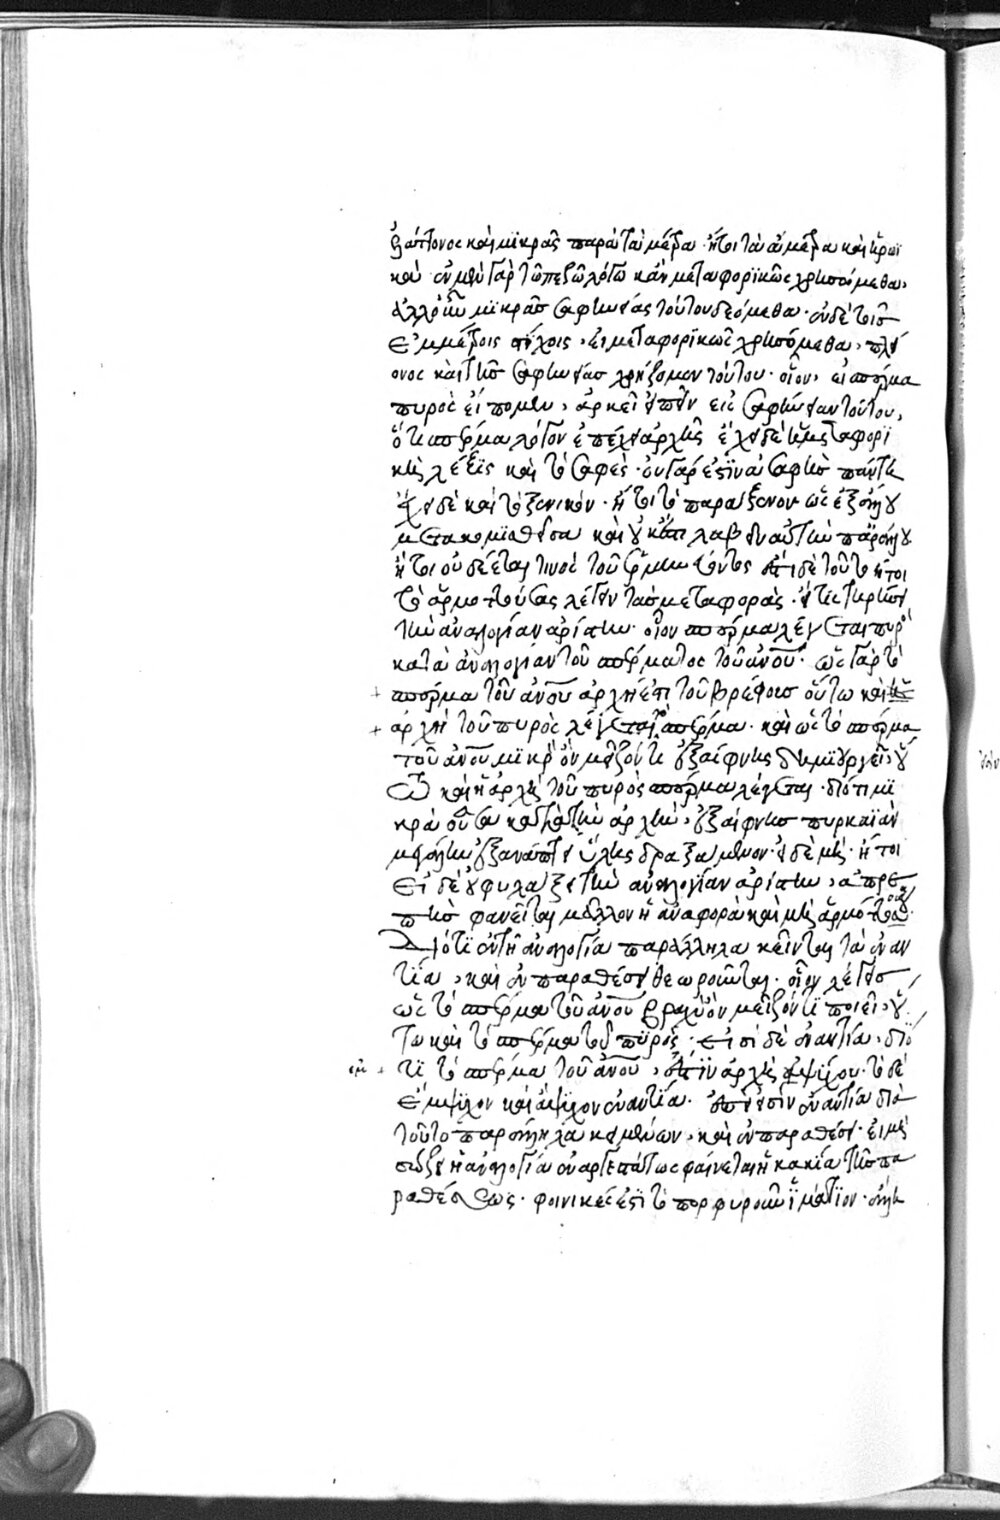 ἐλάττονος καὶ μικρᾶς παρὰ τὰ μέτρα ἤτοι τὰ ἄμετρα καὶ
καὶ ἐν μὲν γὰρ τῷ πεζῷ λόγῳ κἂν μεταφορικῶς χρησόμεθα,
ἀλλ' οὖν μικρᾶς σαφηνείας τούτου δεόμεθα. ἐν δὲ τοῖς
ἐμμέτροις στίχοις, εἰ μεταφορικῶς χρησόμεθα, πλεί
ονος καὶ τῆς σαφηνείας χρῄζομεν τούτου. οἷον, εἰ σπέρμα
πυρὸς εἴπομεν, ἀρκεῖ εἰπεῖν εἰς σαφήνειαν τούτου,
ὅτι σπέρμα λόγον ἐπέχει ἀρχῆς ἔχει δὲ ἡ μεταφορι
κὴ λέξις καὶ τὸ σαφές. οὐ γάρ ἐστιν ἀσαφὴς πάντη
ἔχει δὲ καὶ τὸ ξενικόν. ἤτοι τὸ παράξενον ὡς ἐξ
μετακομισθεῖσα καὶ οὐκ ἔστι λαβεῖν αὐτὴν παρ'
ἤτοι οὐ δέεται τινὸς τοῦ ἑρμηνεύοντος δεῖ δὲ τοῦτο ἤτοι
τὸ ἁρμοττούσας λέγειν τὰς μεταφοράς. τηρήσει
τὴν ἀναλογίαν ἀρίστην. οἷον σπέρμα λέγεται πυρὸς
κατὰ ἀναλογίαν τοῦ σπέρματος τοῦ ἀνου. ὡς γὰρ τὸ
+ σπέρμα τοῦ ἀνου ἀρχὴ ἐπὶ τοῦ βρέφους οὕτω καὶ ἡ
+ ἀρχὴ τοῦ πυρὸς λέγεται σπέρμα. καὶ ὡς τὸ σπέρμα
τοῦ ἀνου μικρὸν ὂν μεῖζόν τι ἐξαίφνης δημιουργεῖ, οὕ
τω καὶ ἡ ἀρχὴ τοῦ πυρὸς σπέρμα λέγεται. διότι μι
κρὰ οὖσα καθ' αὑτὴν ἀρχὴ, ἐξαίφνης πυρκαϊὰν
μεγάλην ἐξανάπτει ὕλης δραξαμένου. εἰ δὲ μὴ. ἤτοι
εἰ δὲ οὐ φυλάξει τὴν ἀναλογίαν ἀρίστην, ἀπρε
πὴς φανεῖται μᾶλλον ἡ ἀναφορὰ καὶ μὴ ἁρμόττουσα.
Διότι ἐν τῇ ἀναλογίᾳ παράλληλα κεῖνται τὰ ἐναν
τία, καὶ ἐν παραθέσει θεωροῦνται. οἷον λέγεις
ὡς τὸ σπέρμα τοῦ ἀνου βραχὺ ὂν μεῖζόν τι ποιεῖ, οὕ
τω καὶ τὸ σπέρμα τοῦ πυρός. εἰσὶ δὲ ἐναντία, διό
τι τὸ σπέρμα τοῦ ἀνου, ἐστὶν ἀρχὴ ἐμψύχου. τὸ δὲ
ἔμψυχον καὶ ἄψυχον ἐναντία. ἐπεὶ εἰσὶν ἐναντία διὰ
τοῦτο παραλλήλα κειμένων, καὶ ἐν παραθέσει. εἰ μὴ
σώζει ἡ ἀναλογία ἐναργεστάτως φαίνεται ἡ κακία τῆς πα
ραθέσεως. φοινικὶς ἐστὶ τὸ πορφυροῦν ἱμάτιον.